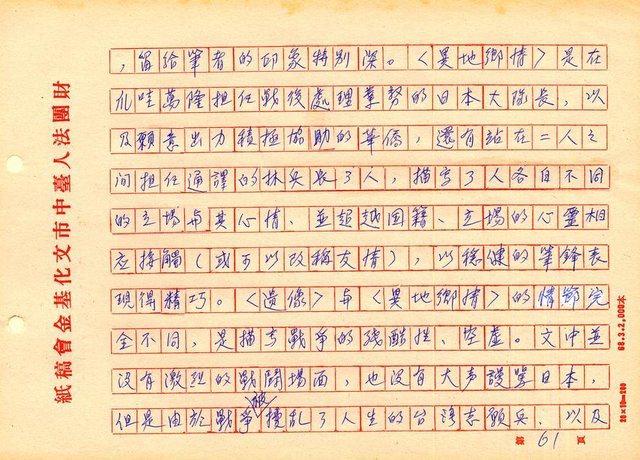 ，留給筆者的印象特別深。〈異地鄉情〉是在
爪哇萬隆担任戰後處理業務的日本大隊長，以
及願意出力積極協助的華僑，還有站在二人之
间担任通譯的林兵長3人，描写了人各自不同
的立場与其心情、並超越囯籍、立場的心靈相
应接觸（或可以改稱友情），以稳健的筆鋒表
現得精巧。〈遺像〉与〈異地鄉情〉的情節完
全不同，是描写戰爭的残酷性、空虛。文中並
沒有激烈的戰鬪場面，也沒有大声譴罵日本，
但是由於戰爭被擾乱了人生的台湾志願兵、以及
財團法人臺中市文化基金會稿紙
68.3.2,000本
20×10＝200
第61頁